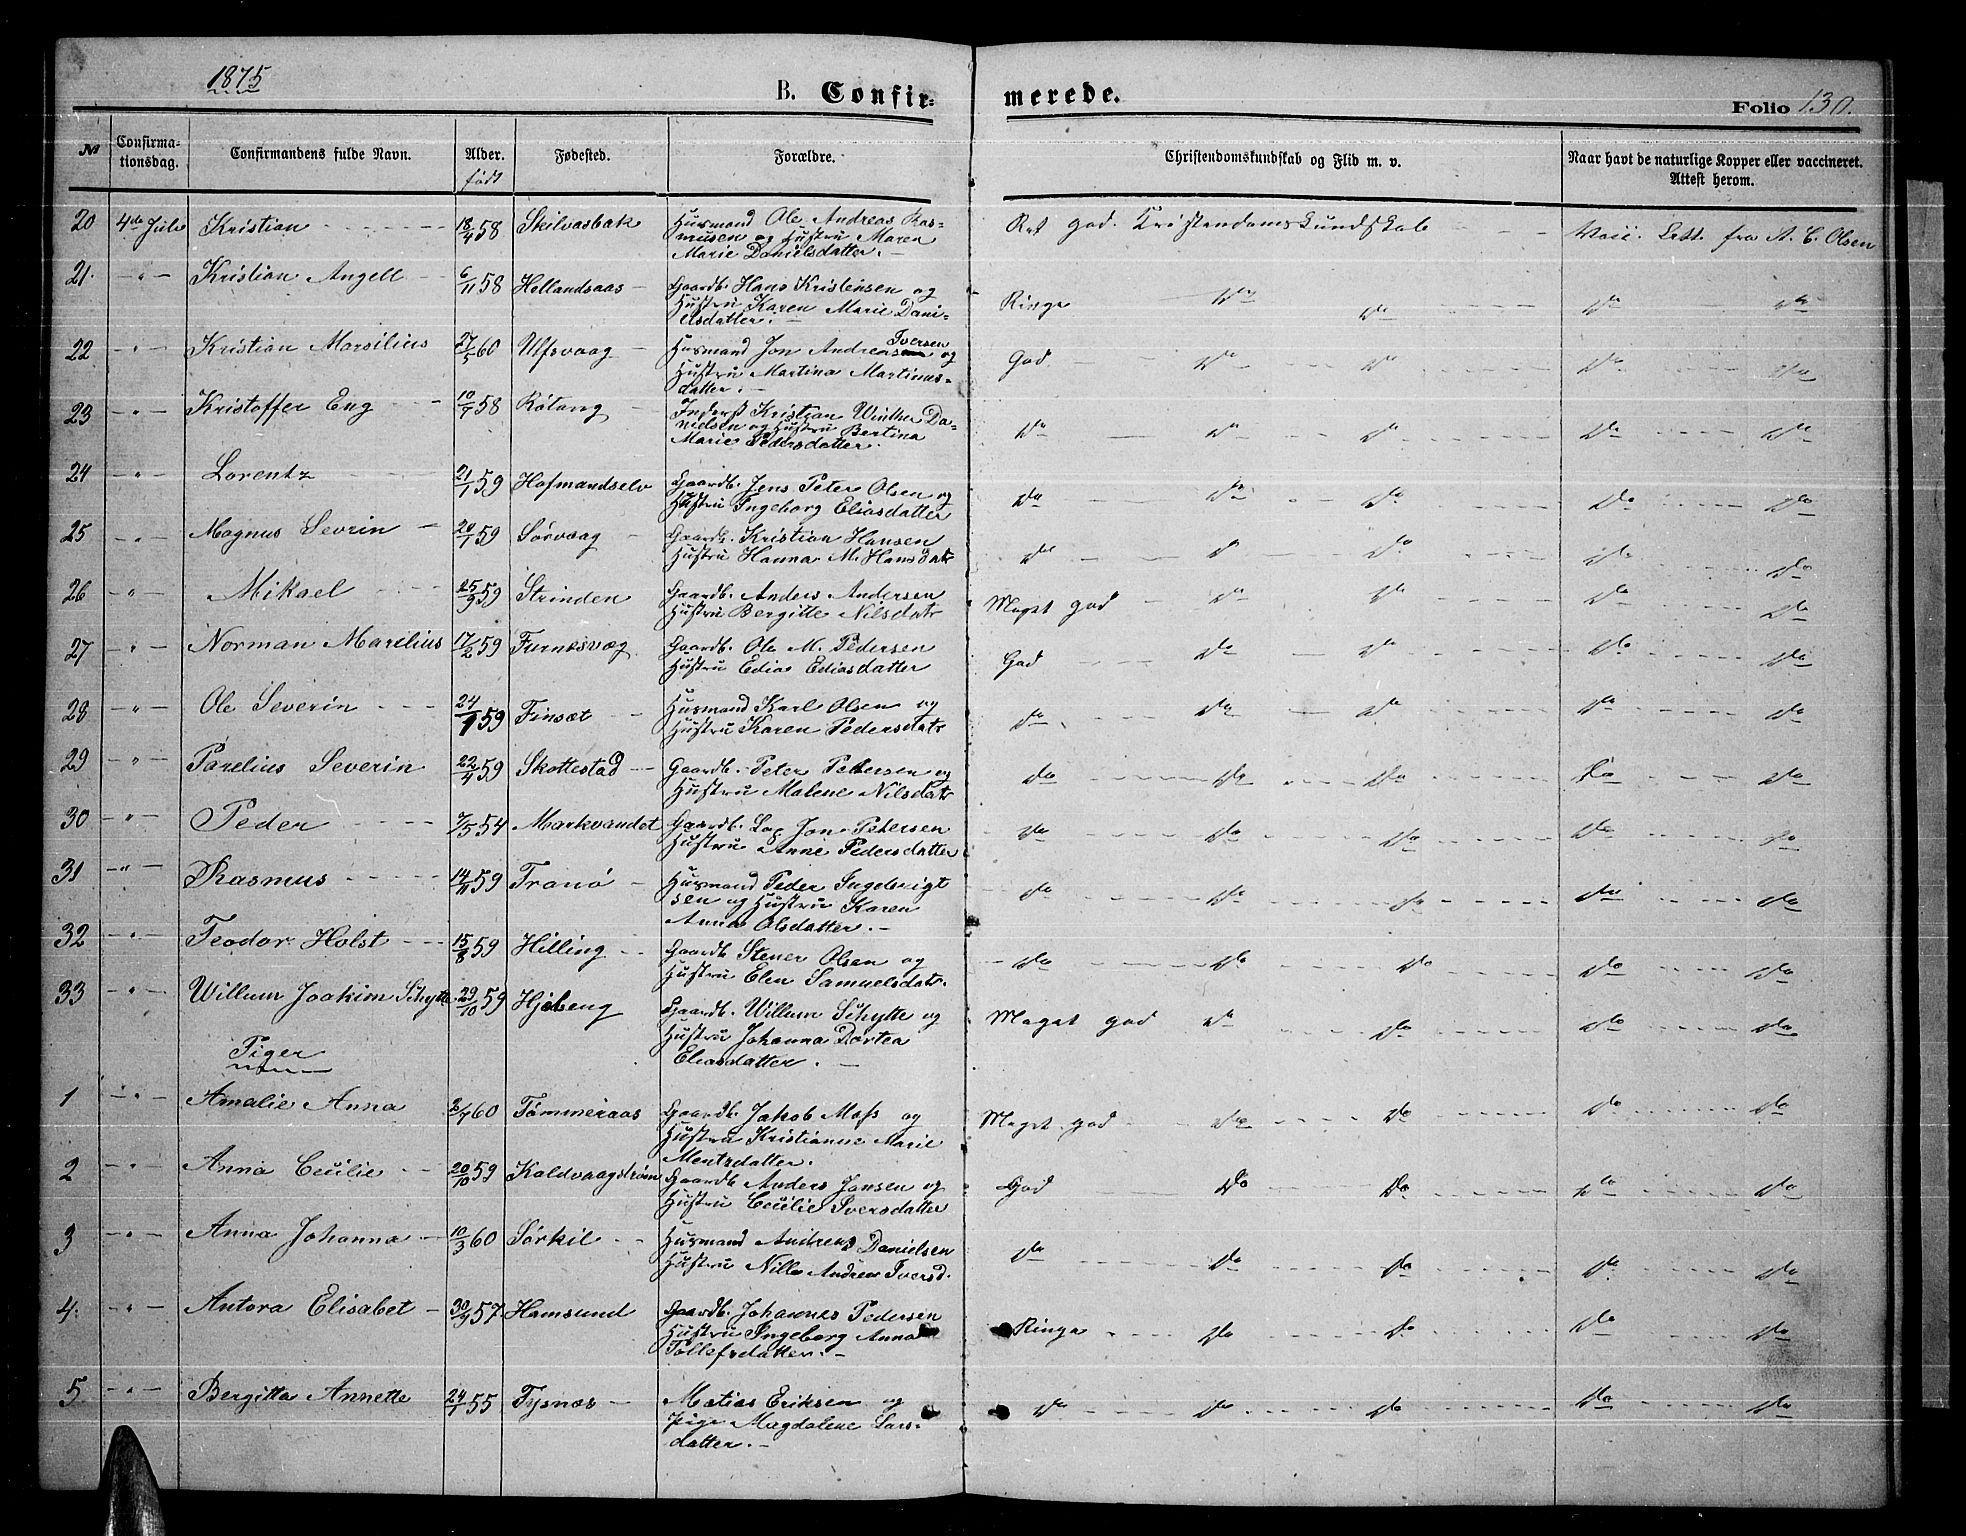 1875
B. Confir-
merede.
Folio 130.
№ Confirma-tionsdag. Confirmandens fulde Navn. Alder. født Fødested. Forældre. Christendomskundskab og Flid m. v. Naar havt de naturlige Kopper eller vaccineret. Attest herom.
20 4de Juli Kristian 18/4 58 Skilvasbak Husmand Ole Andreas Ras-
musen og Hustru Maren
Marie Danielsdatter. Ret god. Kristendomskundskab Vacc. Sett. fra A. C. Olsen
21. " Kristian Angell 6/11 58 Hellandsaas Gaardb. Hans Kristensen og
Hustru Karen Marie Dani-
elsdatter. Ringe Do Do Do Do
22 " Kristian Marsilius 27/5 60 Ulfsvaag Husmand Jon Andreas Iversen og
Hustru Martina Martinus-
datter. God Do Do Do Do
23 " Kristoffer Eng 10/7 58 Røtang Inderst Kristian Winther Da-
nielsen og Hustru Bertina
Marie Pedersdatter. Do Do Do Do Do
24 " Lorentz 21/1 59 Hofmandselv Gaardb. Jens Peter Olsen og
Hustru Ingeborg Eliasdatter Do Do Do Do Do
25 " Magnus Sevrin 20/1 59 Sørvaag Gaardb. Kristian Hansen
Hustru Hanna M. Hansdatr Do Do Do Do Do
26 " Mikael 25/9 59 Strinden Gaardb. Anders Andersen
Hustru Bergitte Nilsdatr Meget god Do Do Do Do
27 " Norman Marelius 17/2 59 Furnesvæg Gaardb. Ole M. Pedersen
Hustru Edia Ediasdatter God Do Do Do Do
28 " Ole Severin 24/1 59 Finsæt Husmand Karl Olsen og
Hustru Karen Pedersdatr Do Do Do Do Do
29 " Parelius Severin 22/4 59 Skottestad Gaardb. Peter Petersen og
Hustru Malene Nilsdatr Do Do Do Do Do
30 " Peder 7/5 54 Markvandet Gaardb. Lap Jon Petersen
Hustru Anne Pedersdatter Do Do Do Do Do
31 " Rasmus 14/11 59 Tranø Husmand Peder Ingebrigt
sen og Hustru Karen
Anna Olsdatter. Do Do Do Do Do
32 " Teodor Holst 15/8 59 Hilling Gaardb. Stener Olsen og
Hustru Elen Samuelsdatr. Do Do Do Do Do
33 " Willum Joakim Schytte 29/10 59 Hjelseng Gaardb. Willum Schytte og
Hustru Johanna Dortea
Eliasdatter. Meget god Do Do Do Do
Piger
1 " Amalie Anna 2/7 60 Tømmeraas Gaardb. Jakob Moss og
Hustru Kristianne Marie
Mentsdatter. Meget god Do Do Do Do
2 " Anna Cecilie 20/10 59 Kaldvaagstrøm Gaardb Anders Jansen og
Hustru Cecilie Iversdatter God Do Do Do Do
3 " Anna Johanna 10/3 60 Sørkil Husmand Andreas Danielsen
Hustru Nilla Andrea Iversd. Do Do Do Do Do
4. " Antora Elisabet 30/9 57 Hamsund Gaardb. Johannes Pedersen
Hustru Ingeborg Anna
Tollefsdatter. Ringe Do Do Do Do
5 " Bergitta Annette 24/1 55 Tysnes Matias Eriksen og
Pige Magdalene Lars-
datter. Do Do Do Do Do